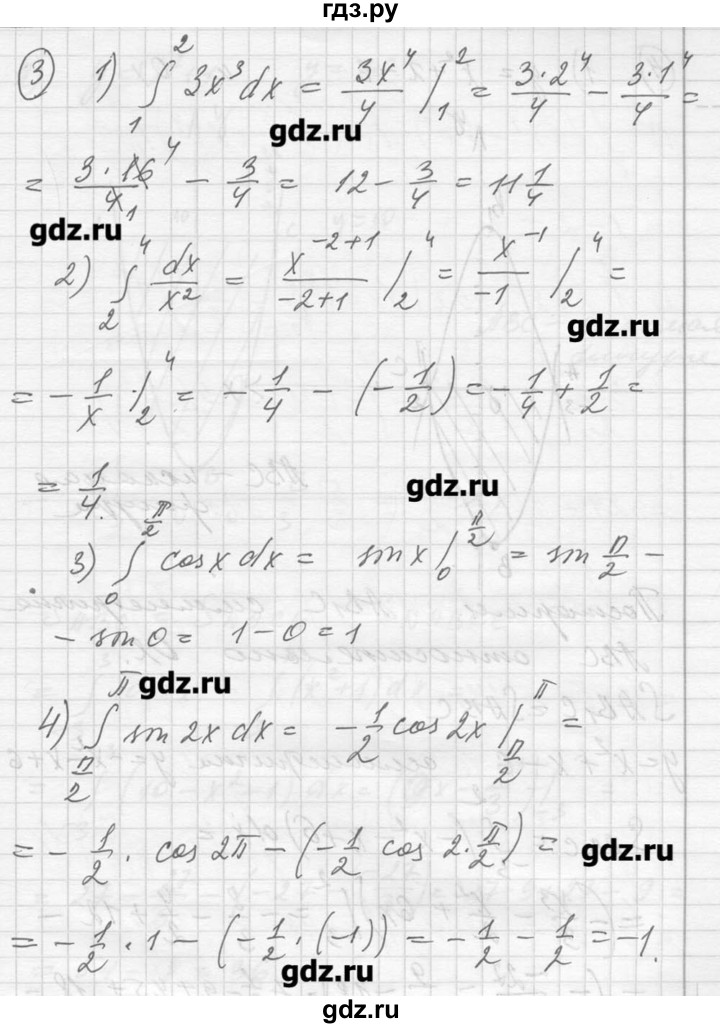 гдз.ру
③ 1) ∫₁² 3x³dx = 3x⁴/4 |₁² = 3·2⁴/4 − 3·1⁴/4 =
gdz.ru
= 3·16⁴/4₁ − 3/4 = 12 − 3/4 = 11 1/4
gdz.ru
2) ∫₂⁴ dx/x² = x⁻²⁺¹/−2+1 |₂⁴ = x⁻¹/−1 |₂⁴ =
gdz.ru
= −1/x |₂⁴ = −1/4 − (−1/2) = −1/4 + 1/2 =
= 1/4.
gdz.ru
3) ∫₀^(π/2) cosx dx = sin x |₀^(π/2) = sin π/2 −
− sin 0 = 1 − 0 = 1
gdz.ru
4) ∫_(π/2)^π sin 2x dx = −1/2 cos 2x |_(π/2)^π =
= −1/2 · cos 2π − (−1/2 cos 2·π/2) =
gdz.ru
= −1/2 · 1 − (−1/2 · (−1)) = −1/2 − 1/2 = −1.
gdz.ru
gdz.ru